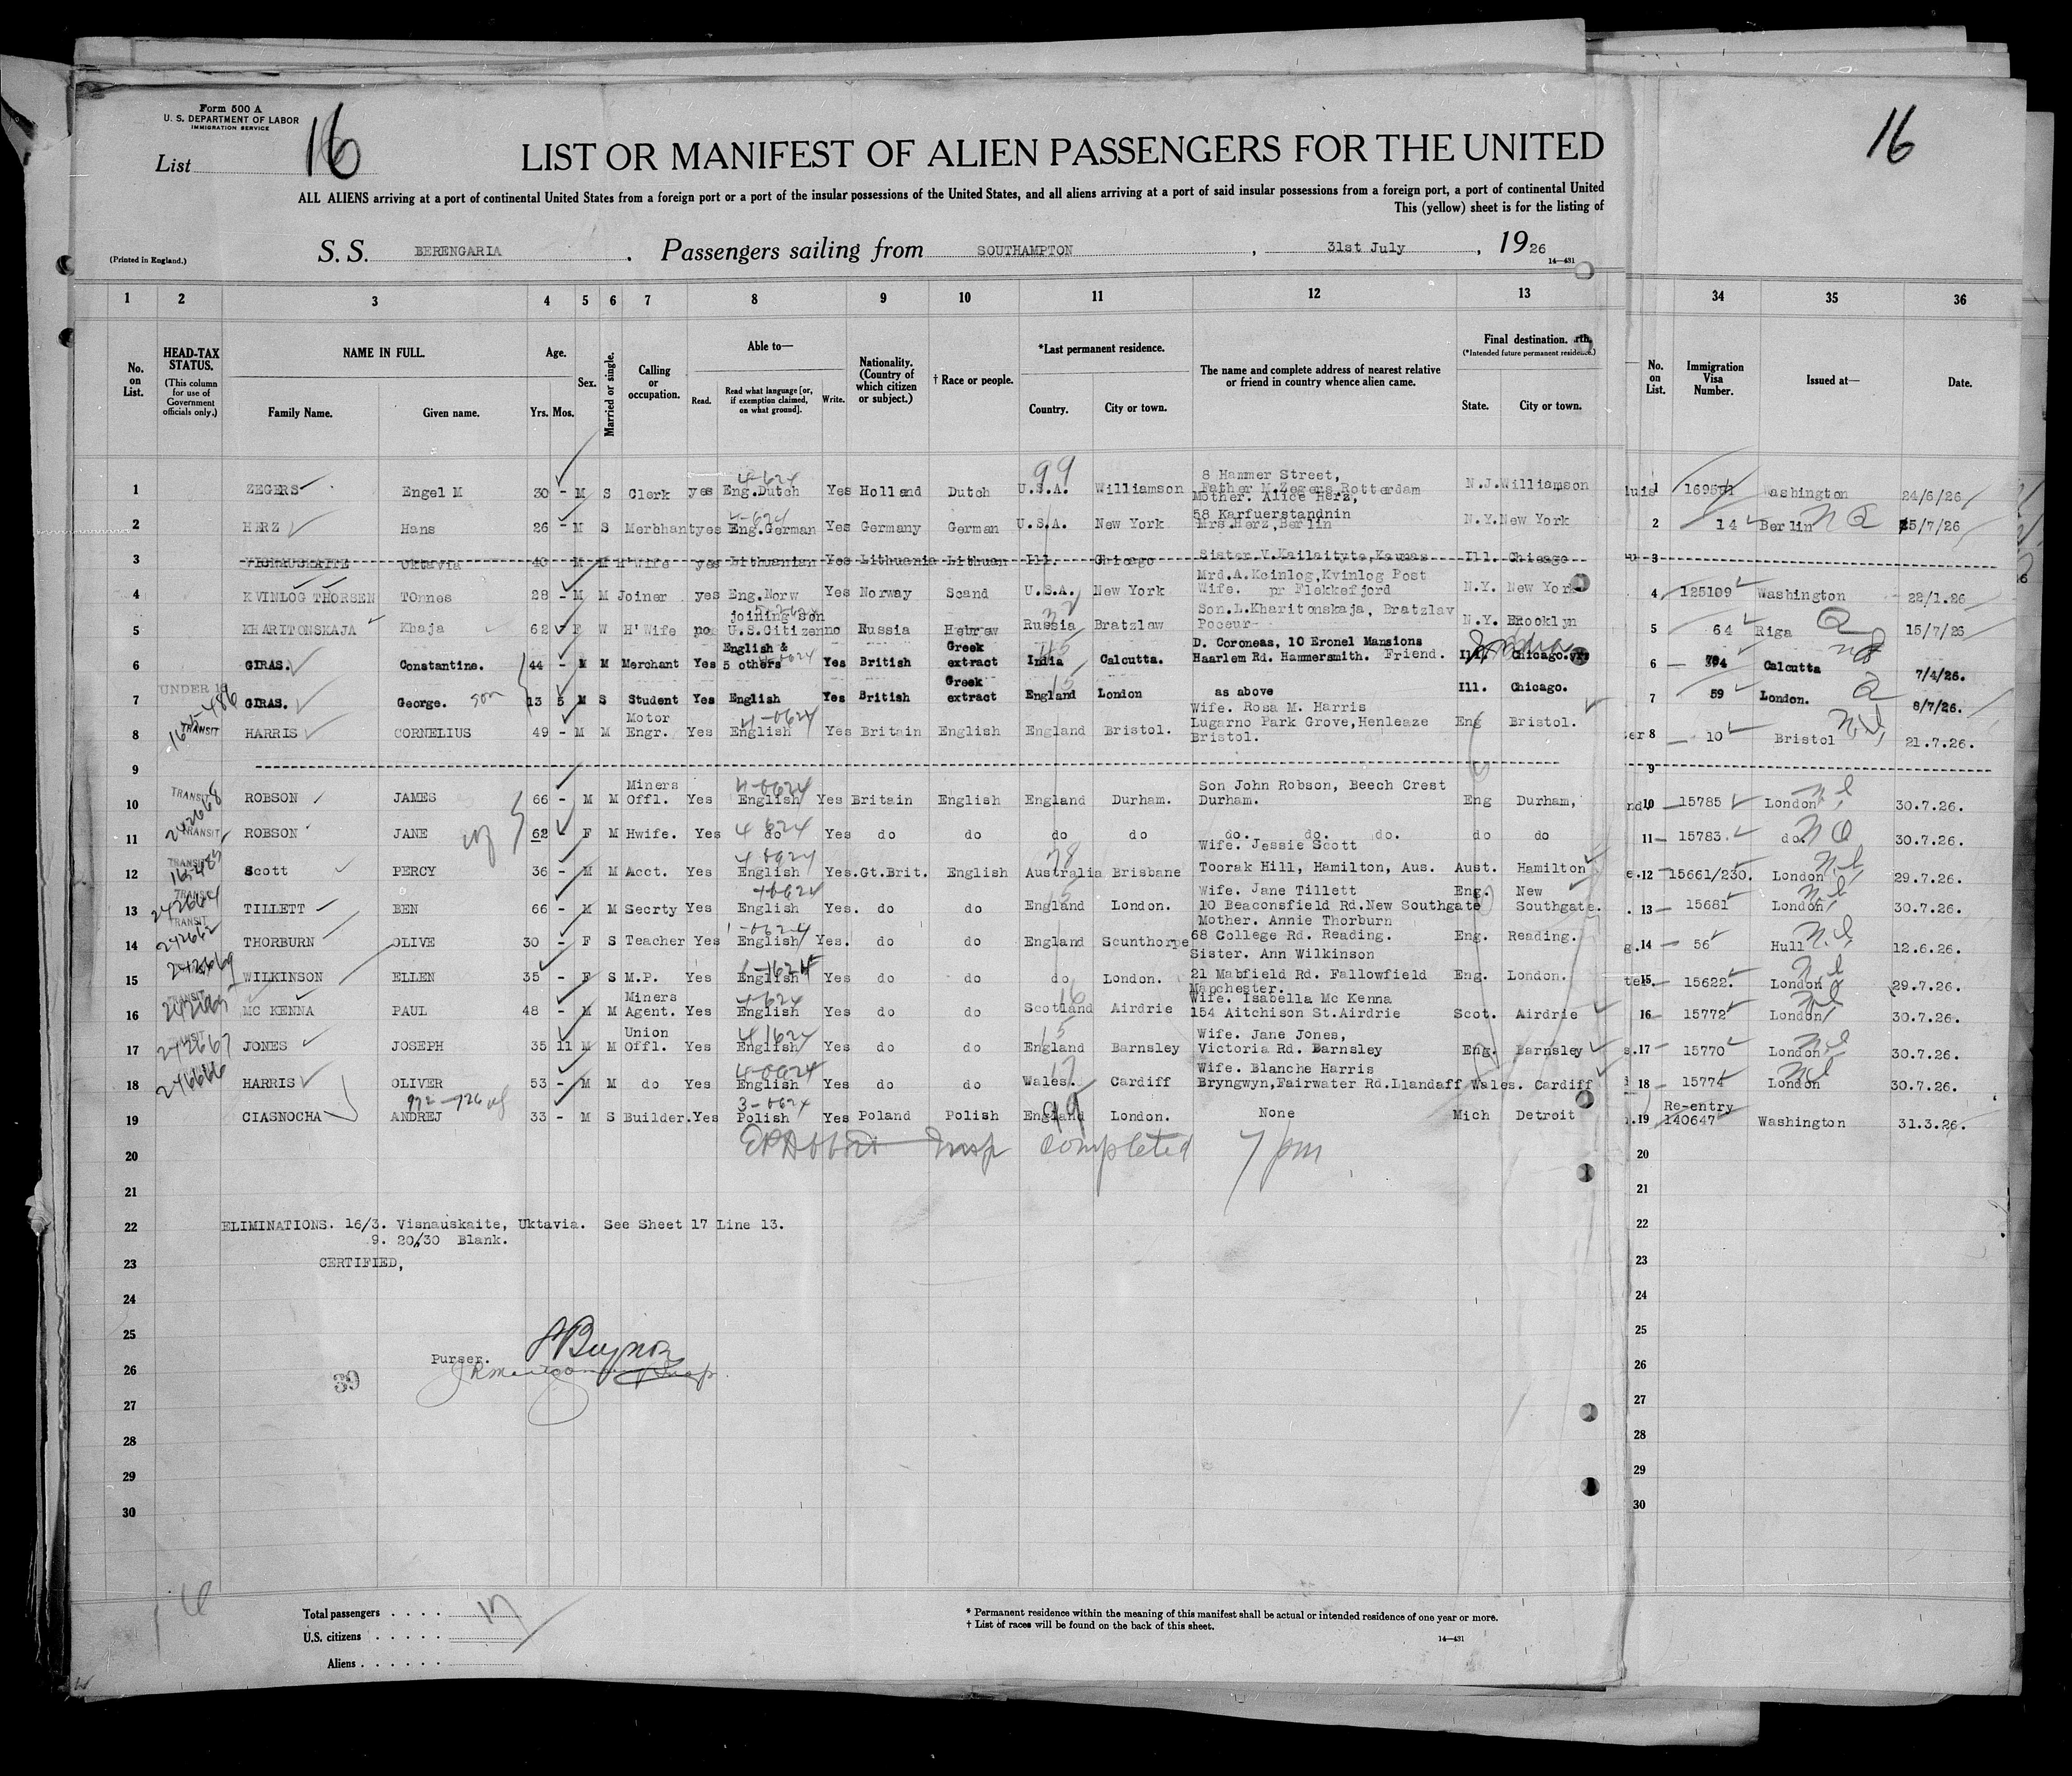 Form 500 A
U. S. DEPARTMENT OF LABOR
IMMIGRATION SERVICE
List 16
16
LIST OR MANIFEST OF ALIEN PASSENGERS FOR THE UNITED
ALL ALIENS arriving at a port of continental United States from a foreign port or a port of the insular possessions of the United States, and all aliens arriving at a port of said insular possessions from a foreign port, a port of continental United
This (yellow) sheet is for the listing of
(Printed in England.) S. S. BERENGARIA. Passengers sailing from SOUTHAMPTON, 31st July, 1926
14—431
1 2 3 4 5 6 7 8 9 10 11 12 13 34 35 36
No. on List.
HEAD-TAX STATUS. (This column for use of Government officials only.)
NAME IN FULL. Family Name. Given name.
Age. Yrs. Mos.
Sex.
Married or single.
Calling or occupation.
Able to— Read. Read what language [or, if exemption claimed, on what ground]. Write.
Nationality. (Country of which citizen or subject.)
† Race or people.
*Last permanent residence. Country. City or town.
The name and complete address of nearest relative or friend in country whence alien came.
Final destination. (*Intended future permanent residence.) State. City or town.
No. on List.
Immigration Visa Number.
Issued at—
Date.
1 ZEGERS Engel M 30 - M S Clerk yes Eng.Dutch Yes Holland Dutch U.S.A. Williamson 8 Hammer Street, Father M.Zegers Rotterdam N.J. Williamson 1 Washington 24/6/26
2 HERZ Hans 26 - M S Merbhant yes Eng.German Yes Germany German U.S.A. New York Mother. Alice Herz, 58 Karfuerstandnin Mrs.Herz,Berlin N.Y. New York 2 14 Berlin 15/7/26
3 VISNAUSKAITE Uktavia 40 M M H'Wife yes Lithuanian Yes Lithuania Lithuan Ill. Chicago Sister V.Kailaityte,Kaunas Ill. Chicago 3
4 KVINLOG THORSEN TOnnes 28 - M M Joiner yes Eng.Norw Yes Norway Scand U.S.A. New York Mrd.A.Koinlog,Kvinlog Post Wife. pr Flekkefjord N.Y. New York 4 125109 Washington 22/1.26
5 KHARITONSKAJA Khaja 62 F W H'Wife no joining son U.S.Citizen no Russia Hebrew Russia Bratzlaw Son.L.Kharitonskaja, Bratzlav Poceur N.Y. Brooklyn 5 64 Riga 15/7/26
6 GIRAS. Constantine. 44 - M M Merchant Yes English & 5 others Yes British Greek extract India Calcutta. D. Coroneas, 10 Eronel Mansions Haarlem Rd. Hammersmith. Friend. Ill. Chicago. 6 Calcutta 7/4/26.
7 UNDER 16 GIRAS. George. son 13 5 M S Student Yes English Yes British Greek extract England London as above Ill. Chicago. 7 59 London. 8/7/26.
8 TRANSIT HARRIS CORNELIUS 49 - M M Motor Engr. Yes English Yes Britain English England Bristol. Wife. Rosa M. Harris Lugarno Park Grove,Henleaze Bristol. Eng Bristol. 8 10 Bristol 21.7.26.
9 9
10 TRANSIT 242668 ROBSON JAMES 66 - M M Miners Offl. Yes English Yes Britain English England Durham. Son John Robson, Beech Crest Durham. Eng Durham, 10 15785 London 30.7.26.
11 TRANSIT ROBSON JANE 62 F M Hwife. Yes do Yes do do do do do. do. do. do do 11 15783. do. 30.7.26.
12 TRANSIT Scott PERCY 36 - M M Acct. Yes English Yes. Gt.Brit. English Australia Brisbane Wife. Jessie Scott Toorak Hill, Hamilton, Aus. Aust. Hamilton 12 15661/230. London 29.7.26.
13 TRANSIT 242664 TILLETT BEN 66 - M M Secrty Yes English Yes. do do England London. Wife. Jane Tillett 10 Beaconsfield Rd.New Southgate Eng. New Southgate. 13 15681 London 30.7.26.
14 TRANSIT 242662 THORBURN OLIVE 30 - F S Teacher Yes English Yes. do do England Scunthorpe Mother. Annie Thorburn 68 College Rd. Reading. Eng. Reading. 14 56 Hull 12.6.26.
15 242669 WILKINSON ELLEN 35 - F S M.P. Yes English Yes do do do London. Sister. Ann Wilkinson 21 Mabfield Rd. Fallowfield Manchester. Eng. London. 15 15622. London 29.7.26.
16 TRANSIT 242665 MC KENNA PAUL 48 - M M Miners Agent. Yes English Yes do do Scotland Airdrie Wife. Isabella Mc Kenna 154 Aitchison St.Airdrie Scot. Airdrie 16 15772 London 30.7.26.
17 242667 JONES JOSEPH 35 11 M M Union Offl. Yes English Yes do do England Barnsley Wife. Jane Jones, Victoria Rd. Barnsley Eng. Barnsley 17 15770 London 30.7.26.
18 246666 HARRIS OLIVER 53 - M M do Yes English Yes do do Wales. Cardiff Wife. Blanche Harris Bryngwyn,Fairwater Rd.Llandaff Wales. Cardiff 18 15774 London 30.7.26.
19 CIASNOCHA ANDREJ 33 - M S Builder. Yes Polish Yes Poland Polish England London. None Mich Detroit 19 Re-entry 140647 Washington 31.3.26.
20 Insp completed 7 pm 20
21 21
22 ELIMINATIONS. 16/3. Visnauskaite, Uktavia. See Sheet 17 Line 13. 22
9. 20/30 Blank.
23 CERTIFIED, 23
24 24
25 25
26 Purser. 26
39
27 27
28 28
29 29
30 30
Total passengers . . . . 17
U.S. citizens . . . . .
Aliens . . . . . .
* Permanent residence within the meaning of this manifest shall be actual or intended residence of one year or more.
† List of races will be found on the back of this sheet.
14—431